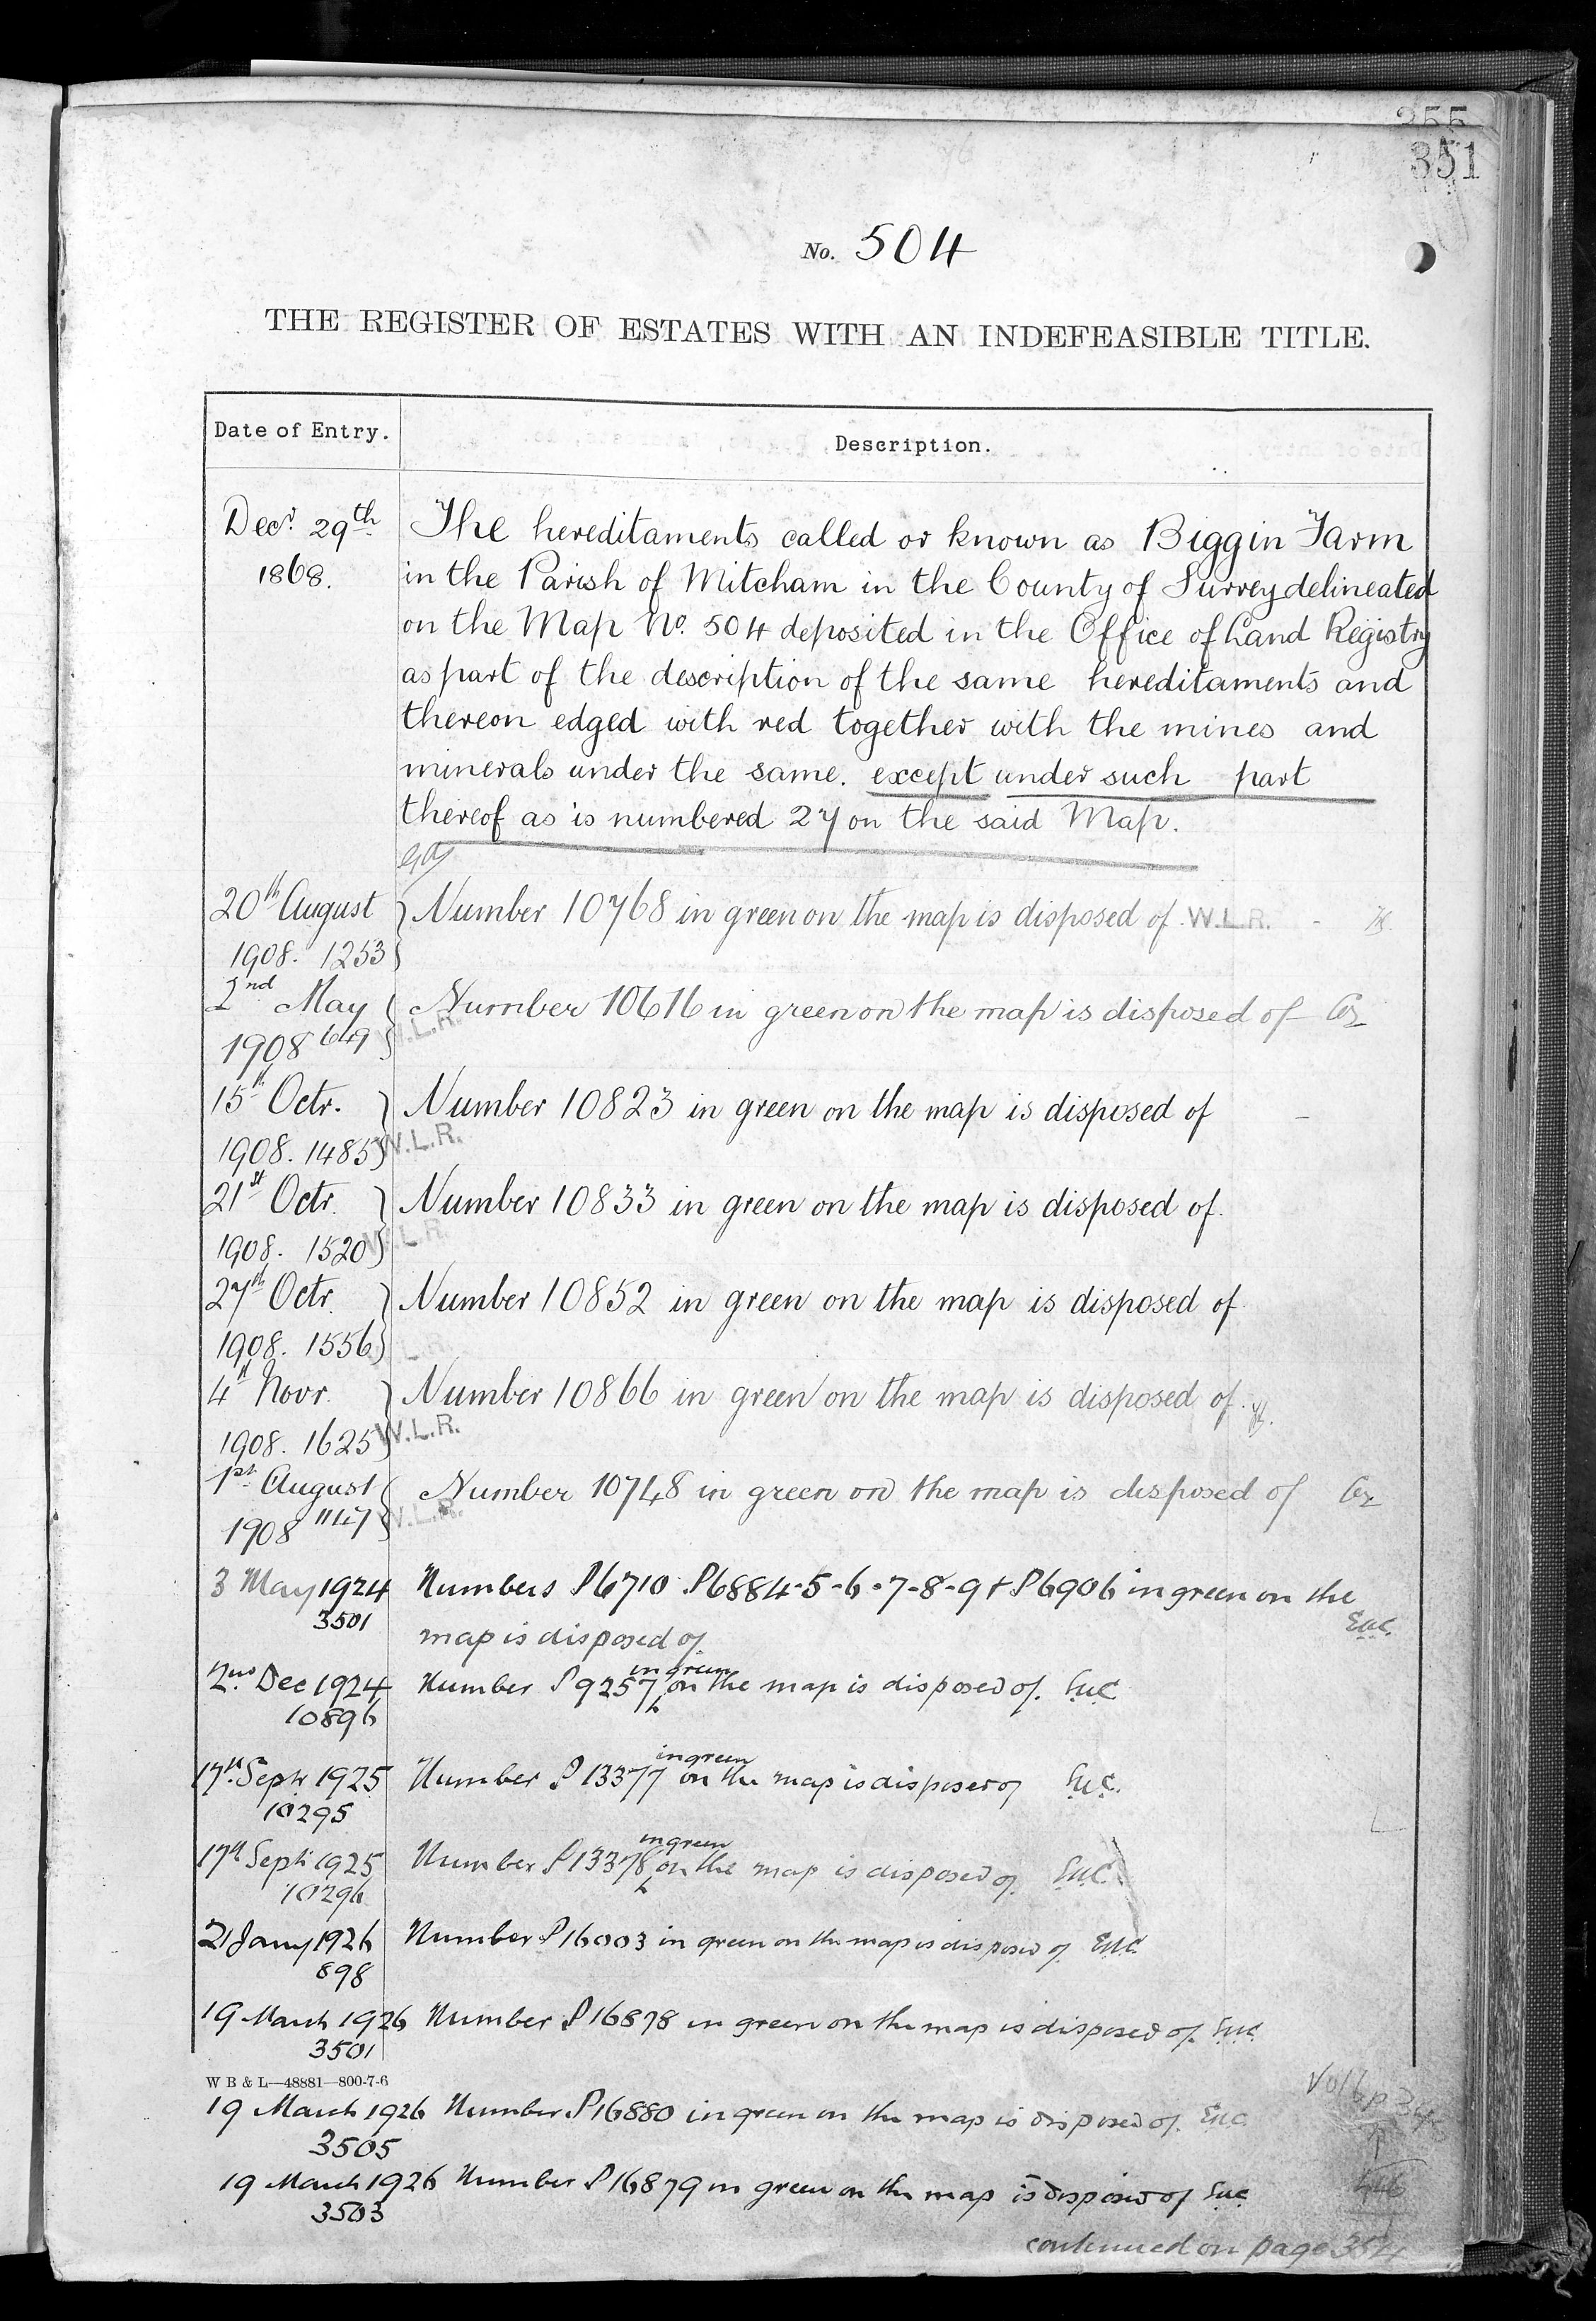 355
351
No. 504
THE REGISTER OF ESTATES WITH AN INDEFEASIBLE TITLE.
Date of Entry. Description.
Decr. 29th The hereditaments called or known as Biggin Farm
1868. in the Parish of Mitcham in the County of Surrey delineated
on the Map No. 504 deposited in the Office of Land Registry
as part of the description of the same hereditaments and
thereon edged with red together with the mines and
minerals under the same. except under such part
thereof as is numbered 27 on the said Map.
20th August } Number 10768 in green on the map is disposed of W.L.R.
1908. 1253
2nd May Number 10616 in green on the map is disposed of
1908 649 W.L.R.
15th Octr. } Number 10823 in green on the map is disposed of
1908. 1485 W.L.R.
21st Octr. } Number 10833 in green on the map is disposed of.
1908. 1520 W.L.R.
27th Octr. } Number 10852 in green on the map is disposed of
1908. 1556 L.R.
4th Novr. } Number 10866 in green on the map is disposed of.
1908. 1625 W.L.R.
1st August Number 10748 in green on the map is disposed of
1908 1147 W.L.R.
3 May 1924 Numbers P6710 P6884-5-6-7-8-9 + P6906 in green on the
3501 map is disposed of
2nd Dec 1924 Number P9257 in green on the map is disposed of.
10896
17th Septr 1925 Number P13377 in green on the map is disposed of
10295
17th Septr 1925 Number P13378 in green on the map is disposed of.
10296
21 Jany 1926 Number P16003 in green on the map is disposed of.
898
19 March 1926 Number P16878 in green on the map is disposed of.
3501
W B & L—48881—800-7-6
19 March 1926 Number P16880 in green on the map is disposed of.
3505
19 March 1926 Number P16879 in green on the map is disposed of
3503
continued on page 354